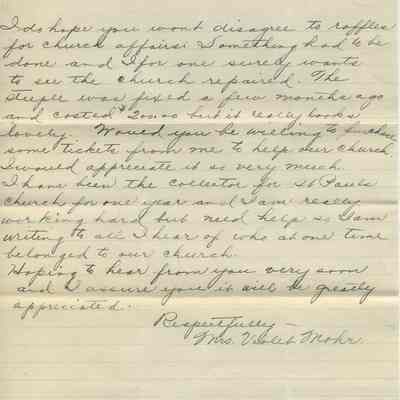 I do hope you wont disagree to raffles
for church affairs. Something had to be
done and I for one surely wants
to see the church repaired. The
steeple was fixed a few months ago
and costed $200.00 but it really looks
lovely. Would you be willing to purchase
some tickets from me to help our church
I would appreciate it so very much.
I have been the collector for St Pauls
church for one year and I am really
working hard but need help so I am
writing to all I hear of who at one time
belonged to our church.
Hoping to hear from you very soon
and I assure you it will be greatly
appreciated.
Respectfully —
Mrs. Violet Mohr